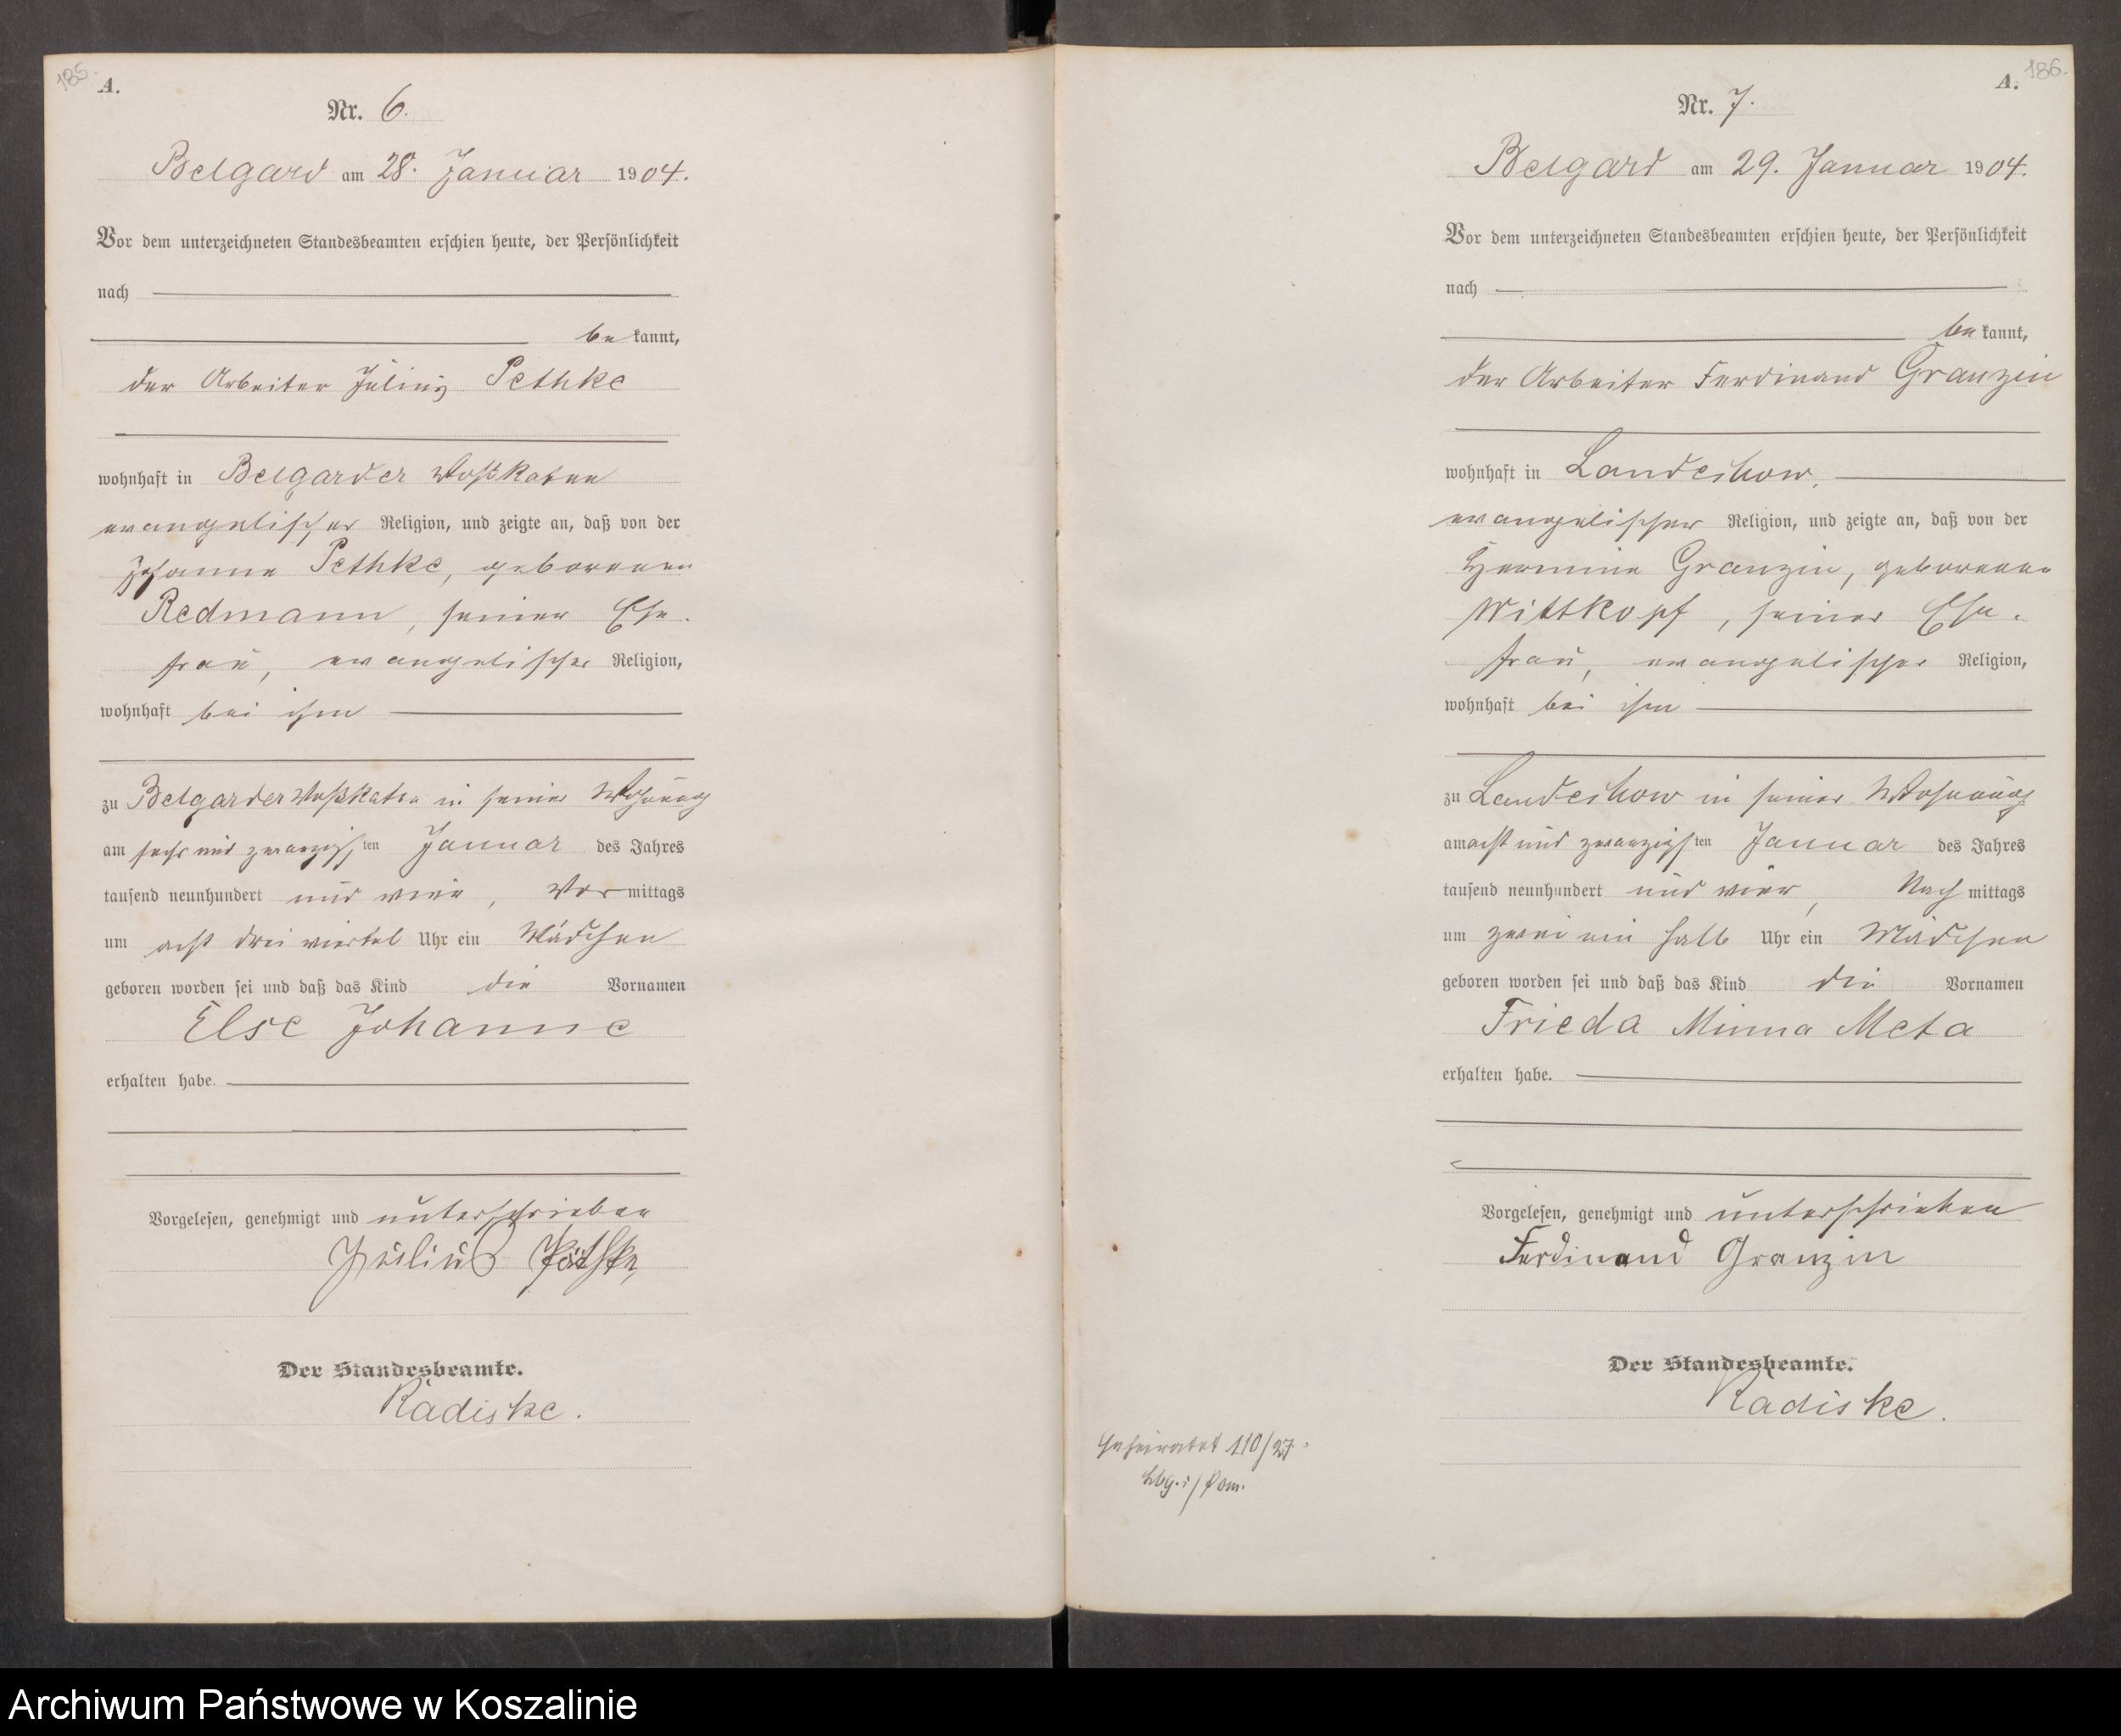 185.
A.
Nr. 6.
Belgard am 28. Januar 1904.
Vor dem unterzeichneten Standesbeamten erschien heute, der Persönlichkeit
nach
be kannt,
der Arbeiter Julius Pethke
wohnhaft in Belgarder Voßkaten
evangelischer Religion, und zeigte an, daß von der
Johanne Pethke, geborenen
Redmann, seiner Ehe-
frau, evangelischer Religion,
wohnhaft bei ihm
zu Belgarder Voßkaten in seiner Wohnung
am sechs und zwanzigsten Januar des Jahres
tausend neunhundert und vier, Vor mittags
um acht drei viertel Uhr ein Mädchen
geboren worden sei und daß das Kind die Vornamen
Else Johanne
erhalten habe.
Vorgelesen, genehmigt und unterschrieben
Julius Päthke
Der Standesbeamte.
Radiske.
186.
A.
Nr. 7.
Belgard am 29. Januar 1904.
Vor dem unterzeichneten Standesbeamten erschien heute, der Persönlichkeit
nach
be kannt,
der Arbeiter Ferdinand Granzin
wohnhaft in Landechow,
evangelischer Religion, und zeigte an, daß von der
Hermine Granzin, geborenen
Wittkopf, seiner Ehe-
frau, evangelischer Religion,
wohnhaft bei ihm
zu Landechow in seiner Wohnung
am acht und zwanzigsten Januar des Jahres
tausend neunhundert und vier, Nach mittags
um zwei ein halb Uhr ein Mädchen
geboren worden sei und daß das Kind die Vornamen
Frieda Minna Meta
erhalten habe.
Vorgelesen, genehmigt und unterschrieben
Ferdinand Granzin
Der Standesbeamte.
Radiske.
Geheiratet 110/27.
Lbg. i/Pom.
Archiwum Państwowe w Koszalinie